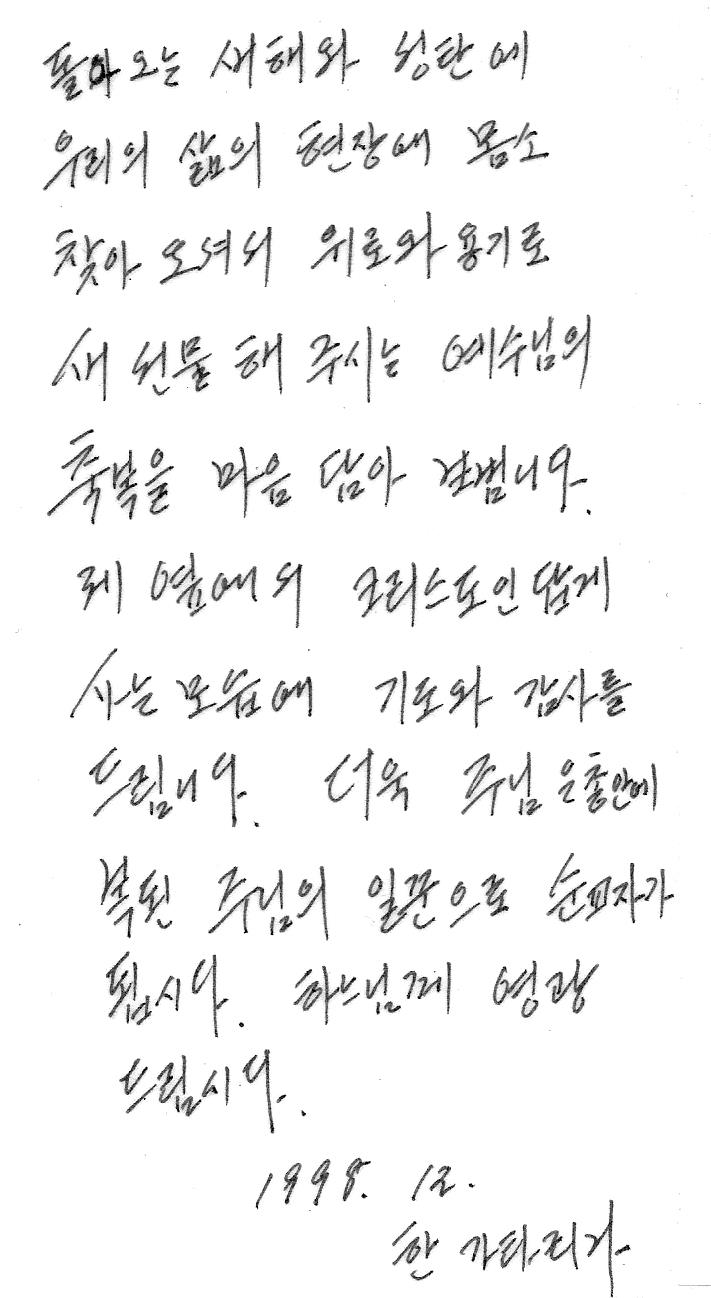 돌아오는 새해와 성탄에
우리의 삶의 현장에 몸소
찾아 오셔서 위로와 용기로
새 선물 해 주시는 예수님의
축복을 마음 담아 전합니다.
제 옆에서 크리스도인 답게
사는 모습에 기도와 감사를
드립니다. 더욱 주님 은총안에
복된 주님의 일꾼으로 순교자가
됩시다. 하느님께 영광
드립시다.
1998. 12.
한 가타리나